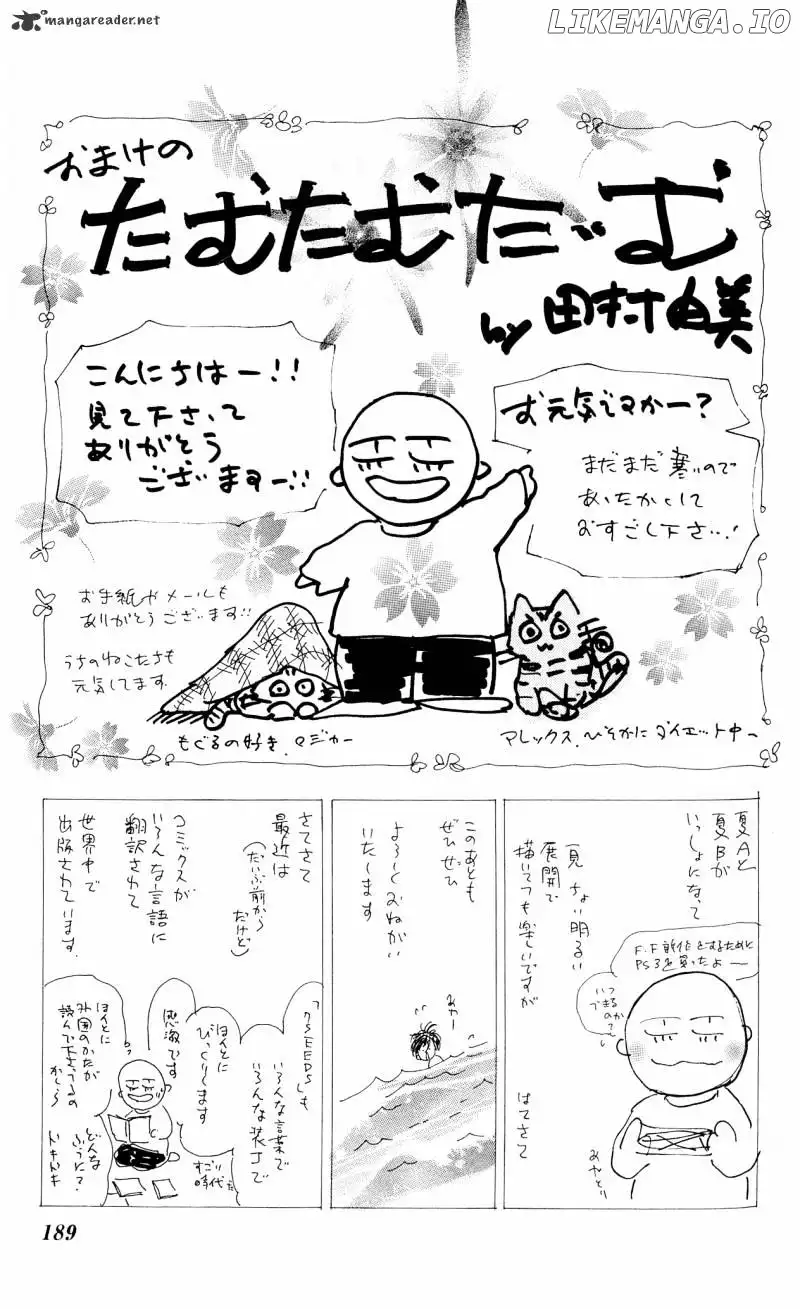 mangareader.net
LIKEMANGA.IO
おまけの
たむたむたーいむ
by 田村由美
こんにちはー!!
見て下さって
ありがとう
ございますー!!
お元気ですかー?
まだまだ寒いので
あったかくして
おすごし下さい!
お手紙やメールも
ありがとうございます!!
うちのねこたちも
元気してます
もぐるの好き、マジカー
アレックス、ひそかにダイエット中ー
夏Aと
夏Bが
いっしょになって
一見ちょい明るい
展開で
描いてても楽しいですが
はてさて
F.F新作をするために
PS3を買ったよー
いつ
できるのか?
みやとり
このあとも
ぜひぜひ
よろしくおねがい
いたします
みゃー
さてさて
最近は
(だいぶ前から
だけど)
コミックスが
いろんな言語に
翻訳されて
世界中で
出版されています
「7SEEDS」も
いろんな言葉で
いろんな装丁で
ほんとに
びっくりします
感激です
すごい
時代だ
ほんとに
外国のかたが
読んで下さってるの
かしら
どんな
ふうに?
ドキドキ
189